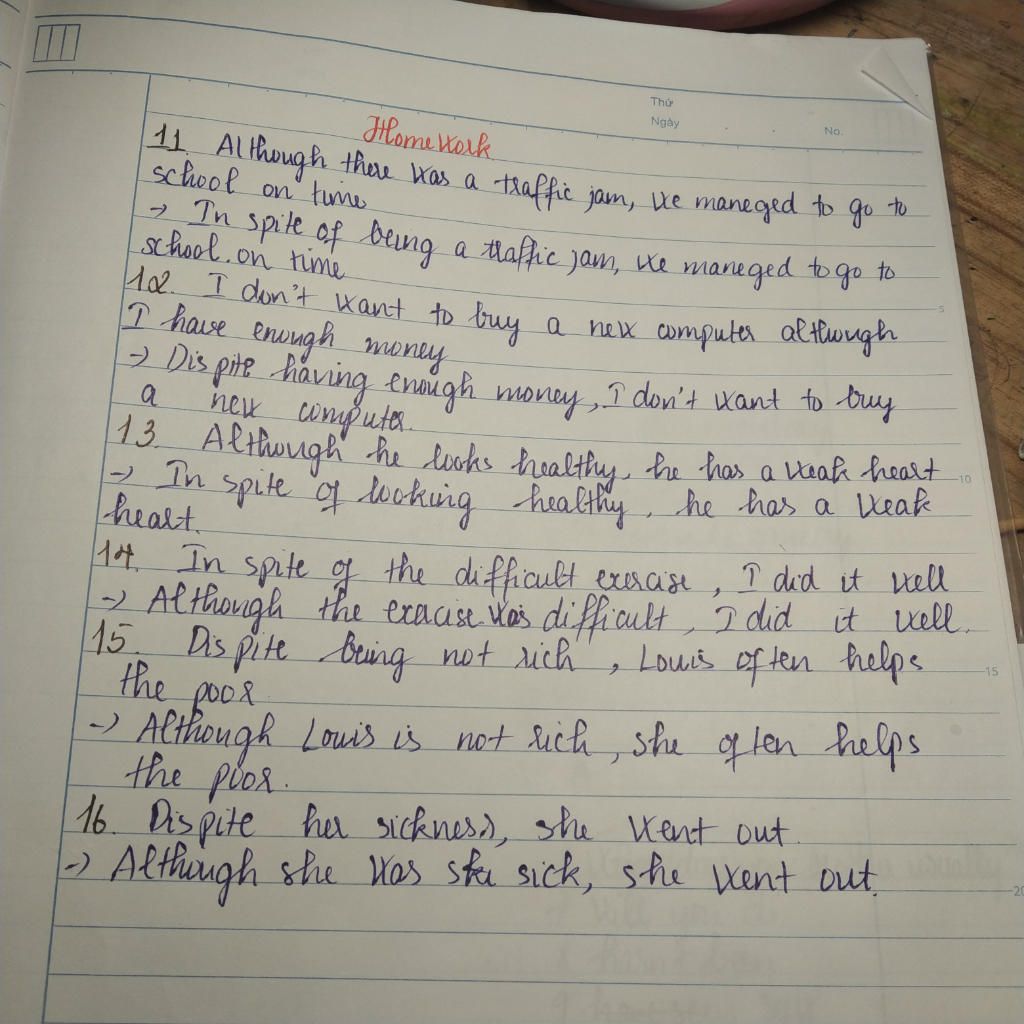 Thứ
Ngày
No.
Home Work
11 Although there was a traffic jam, we maneged to go to
school on time
→ In spite of being a traffic jam, we maneged to go to
school on time
12. I don't want to buy a new computer although
I have enough money
→ Dispite having enough money, I don't want to buy
a new computer.
13. Although he looks healthy, he has a weak heart
→ In spite of looking healthy, he has a weak
heart.
14. In spite of the difficult exercise, I did it well
→ Although the exercise was difficult, I did it well.
15. Dispite being not rich, Louis often helps
the poor
→ Although Louis is not rich, she often helps
the poor.
16. Dispite her sickness, she went out.
→ Although she was sick, she went out.
5
10
15
20